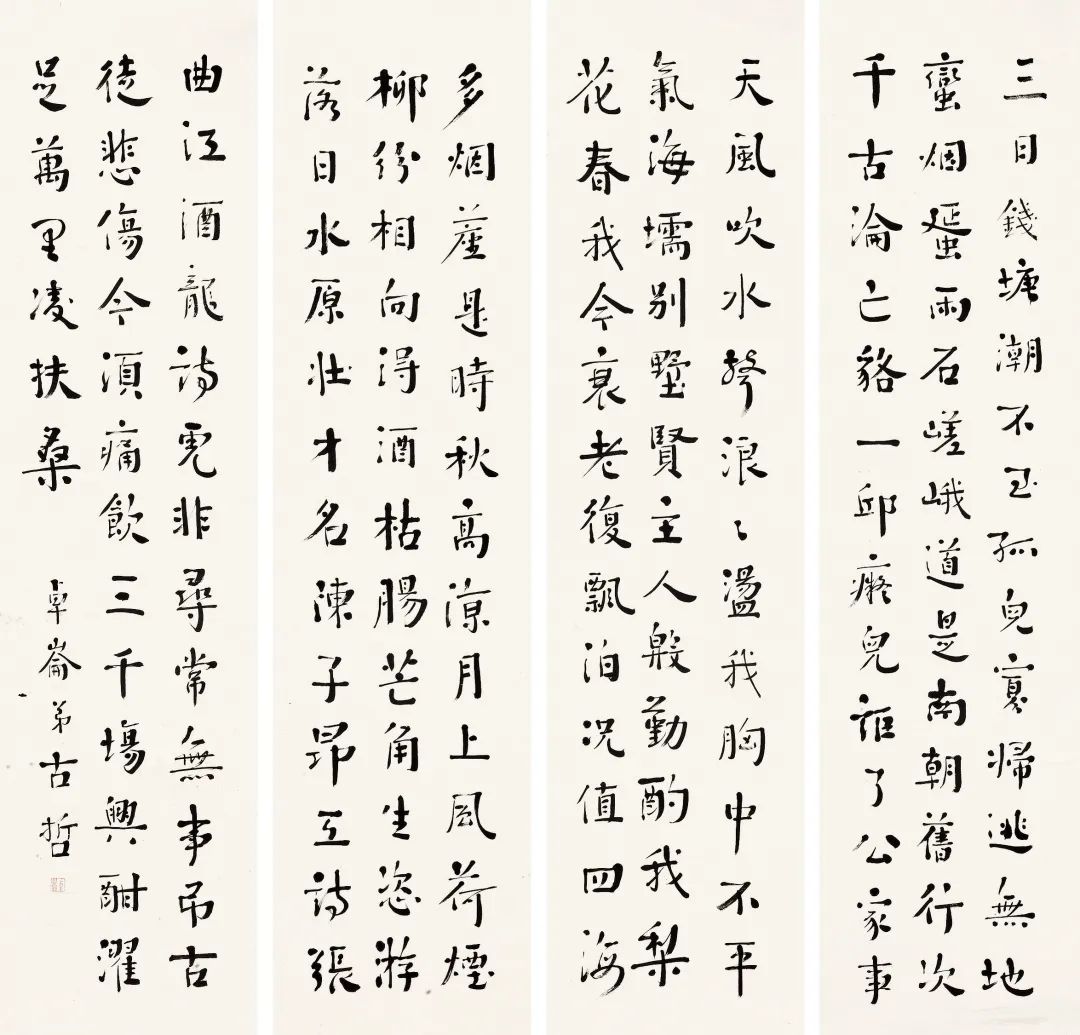 三日錢塘潮不至孤兒寡婦逃無地
蠻烟蜑雨石嵯峨道是南朝舊行次
千古淪亡貉一邱癡兒詎了公家事
天風吹水聲浪〻盪我胸中不平
氣海壖別墅賢主人殷勤酌我梨
花春我今衰老復飄泊況值四海
多烟塵是時秋高涼月上風荷煙
柳紛相向得酒枯腸芒角生恣游
落日水原壯才名陳子昂工詩張
曲江酒龍詩虎非尋常無事弔古
徒悲傷今須痛飲三千塲興酣濯
足萬里凌扶桑 卓崙弟古哲